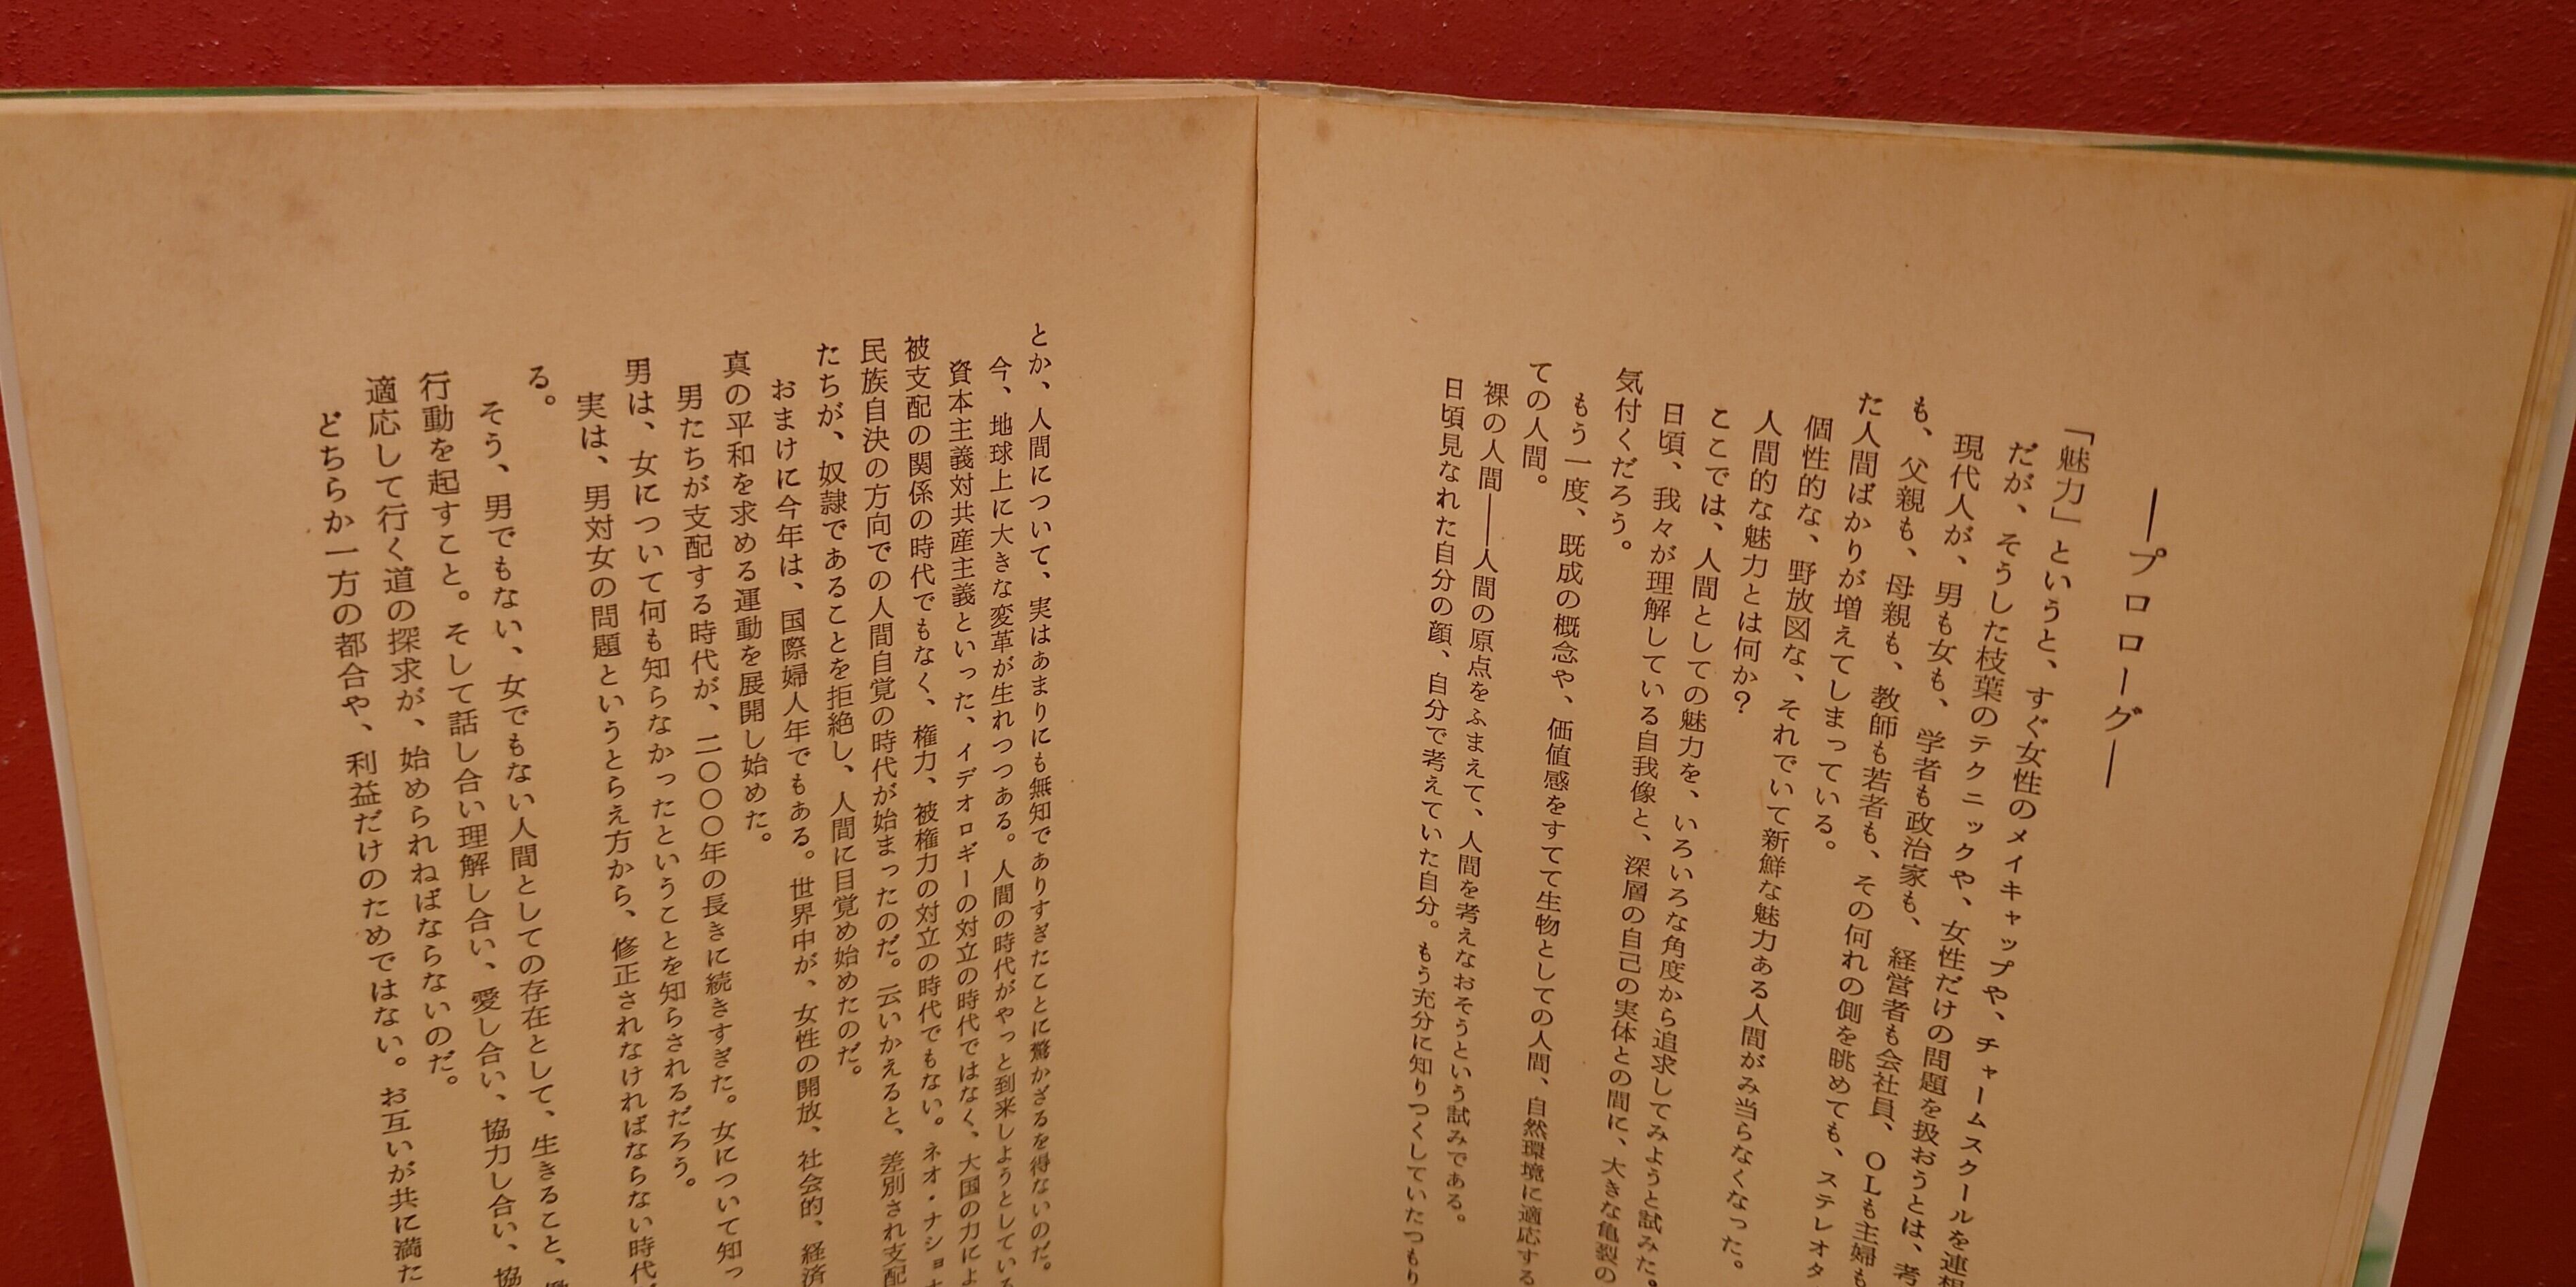 ―プロローグ―
「魅力」というと、すぐ女性のメイキャップや、チャームスクールを連想
だが、そうした枝葉のテクニックや、女性だけの問題を扱おうとは、考
現代人が、男も女も、学者も政治家も、経営者も会社員、OLも主婦も
も、父親も、母親も、教師も若者も、その何れの側を眺めても、ステレオタ
た人間ばかりが増えてしまっている。
個性的な、野放図な、それでいて新鮮な魅力ある人間がみ当らなくなった。
人間的な魅力とは何か?
ここでは、人間としての魅力を、いろいろな角度から追求してみようと試みた。
日頃、我々が理解している自我像と、深層の自己の実体との間に、大きな亀裂の
気付くだろう。
もう一度、既成の概念や、価値感をすてて生物としての人間、自然環境に適応する
ての人間。
裸の人間――人間の原点をふまえて、人間を考えなおそうという試みである。
日頃見なれた自分の顔、自分で考えていた自分。もう充分に知りつくしていたつもり
とか、人間について、実はあまりにも無知でありすぎたことに驚かざるを得ないのだ。
今、地球上に大きな変革が生れつつある。人間の時代がやっと到来しようとしている
資本主義対共産主義といった、イデオロギーの対立の時代ではなく、大国の力によ
被支配の関係の時代でもなく、権力、被権力の対立の時代でもない。ネオ・ナショナ
民族自決の方向での人間自覚の時代が始まったのだ。云いかえると、差別され支配
たちが、奴隷であることを拒絶し、人間に目覚め始めたのだ。
おまけに今年は、国際婦人年でもある。世界中が、女性の開放、社会的、経済
真の平和を求める運動を展開し始めた。
男たちが支配する時代が、二〇〇〇年の長きに続きすぎた。女について知っ
男は、女について何も知らなかったということを知らされるだろう。
実は、男対女の問題というとらえ方から、修正されなければならない時代
る。
そう、男でもない、女でもない人間としての存在として、生きること、
行動を起すこと。そして話し合い理解し合い、愛し合い、協力し合い、協
適応して行く道の探求が、始められねばならないのだ。
どちらか一方の都合や、利益だけのためではない。お互いが共に満た